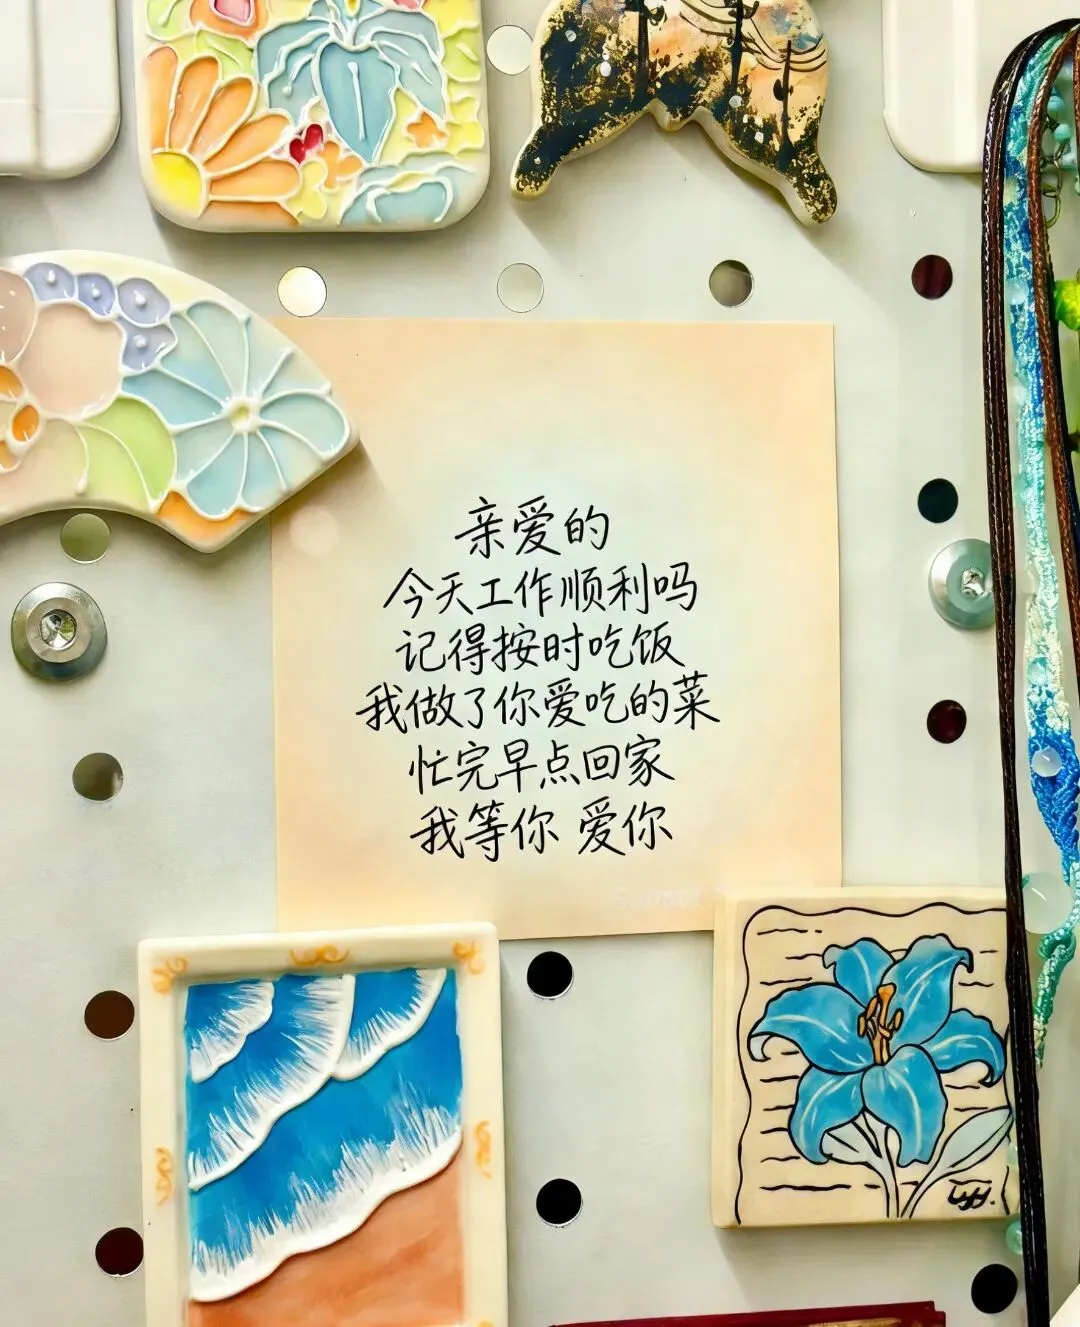 亲爱的
今天工作顺利吗
记得按时吃饭
我做了你爱吃的菜
忙完早点回家
我等你 爱你